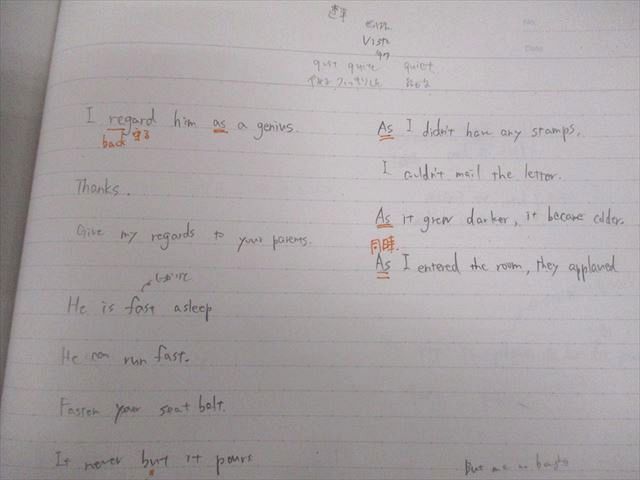 Visit
quit quite quiet
I regard him as a genius.
back 見る
Thanks.
Give my regards to your parents.
He is fast asleep
He can run fast.
Fasten your seat belt.
It never but it pours
No.
Date
As I didn't have any stamps,
I couldn't mail the letter.
As it grew darker, it became colder.
同時
As I entered the room, they applaued
But me no buts